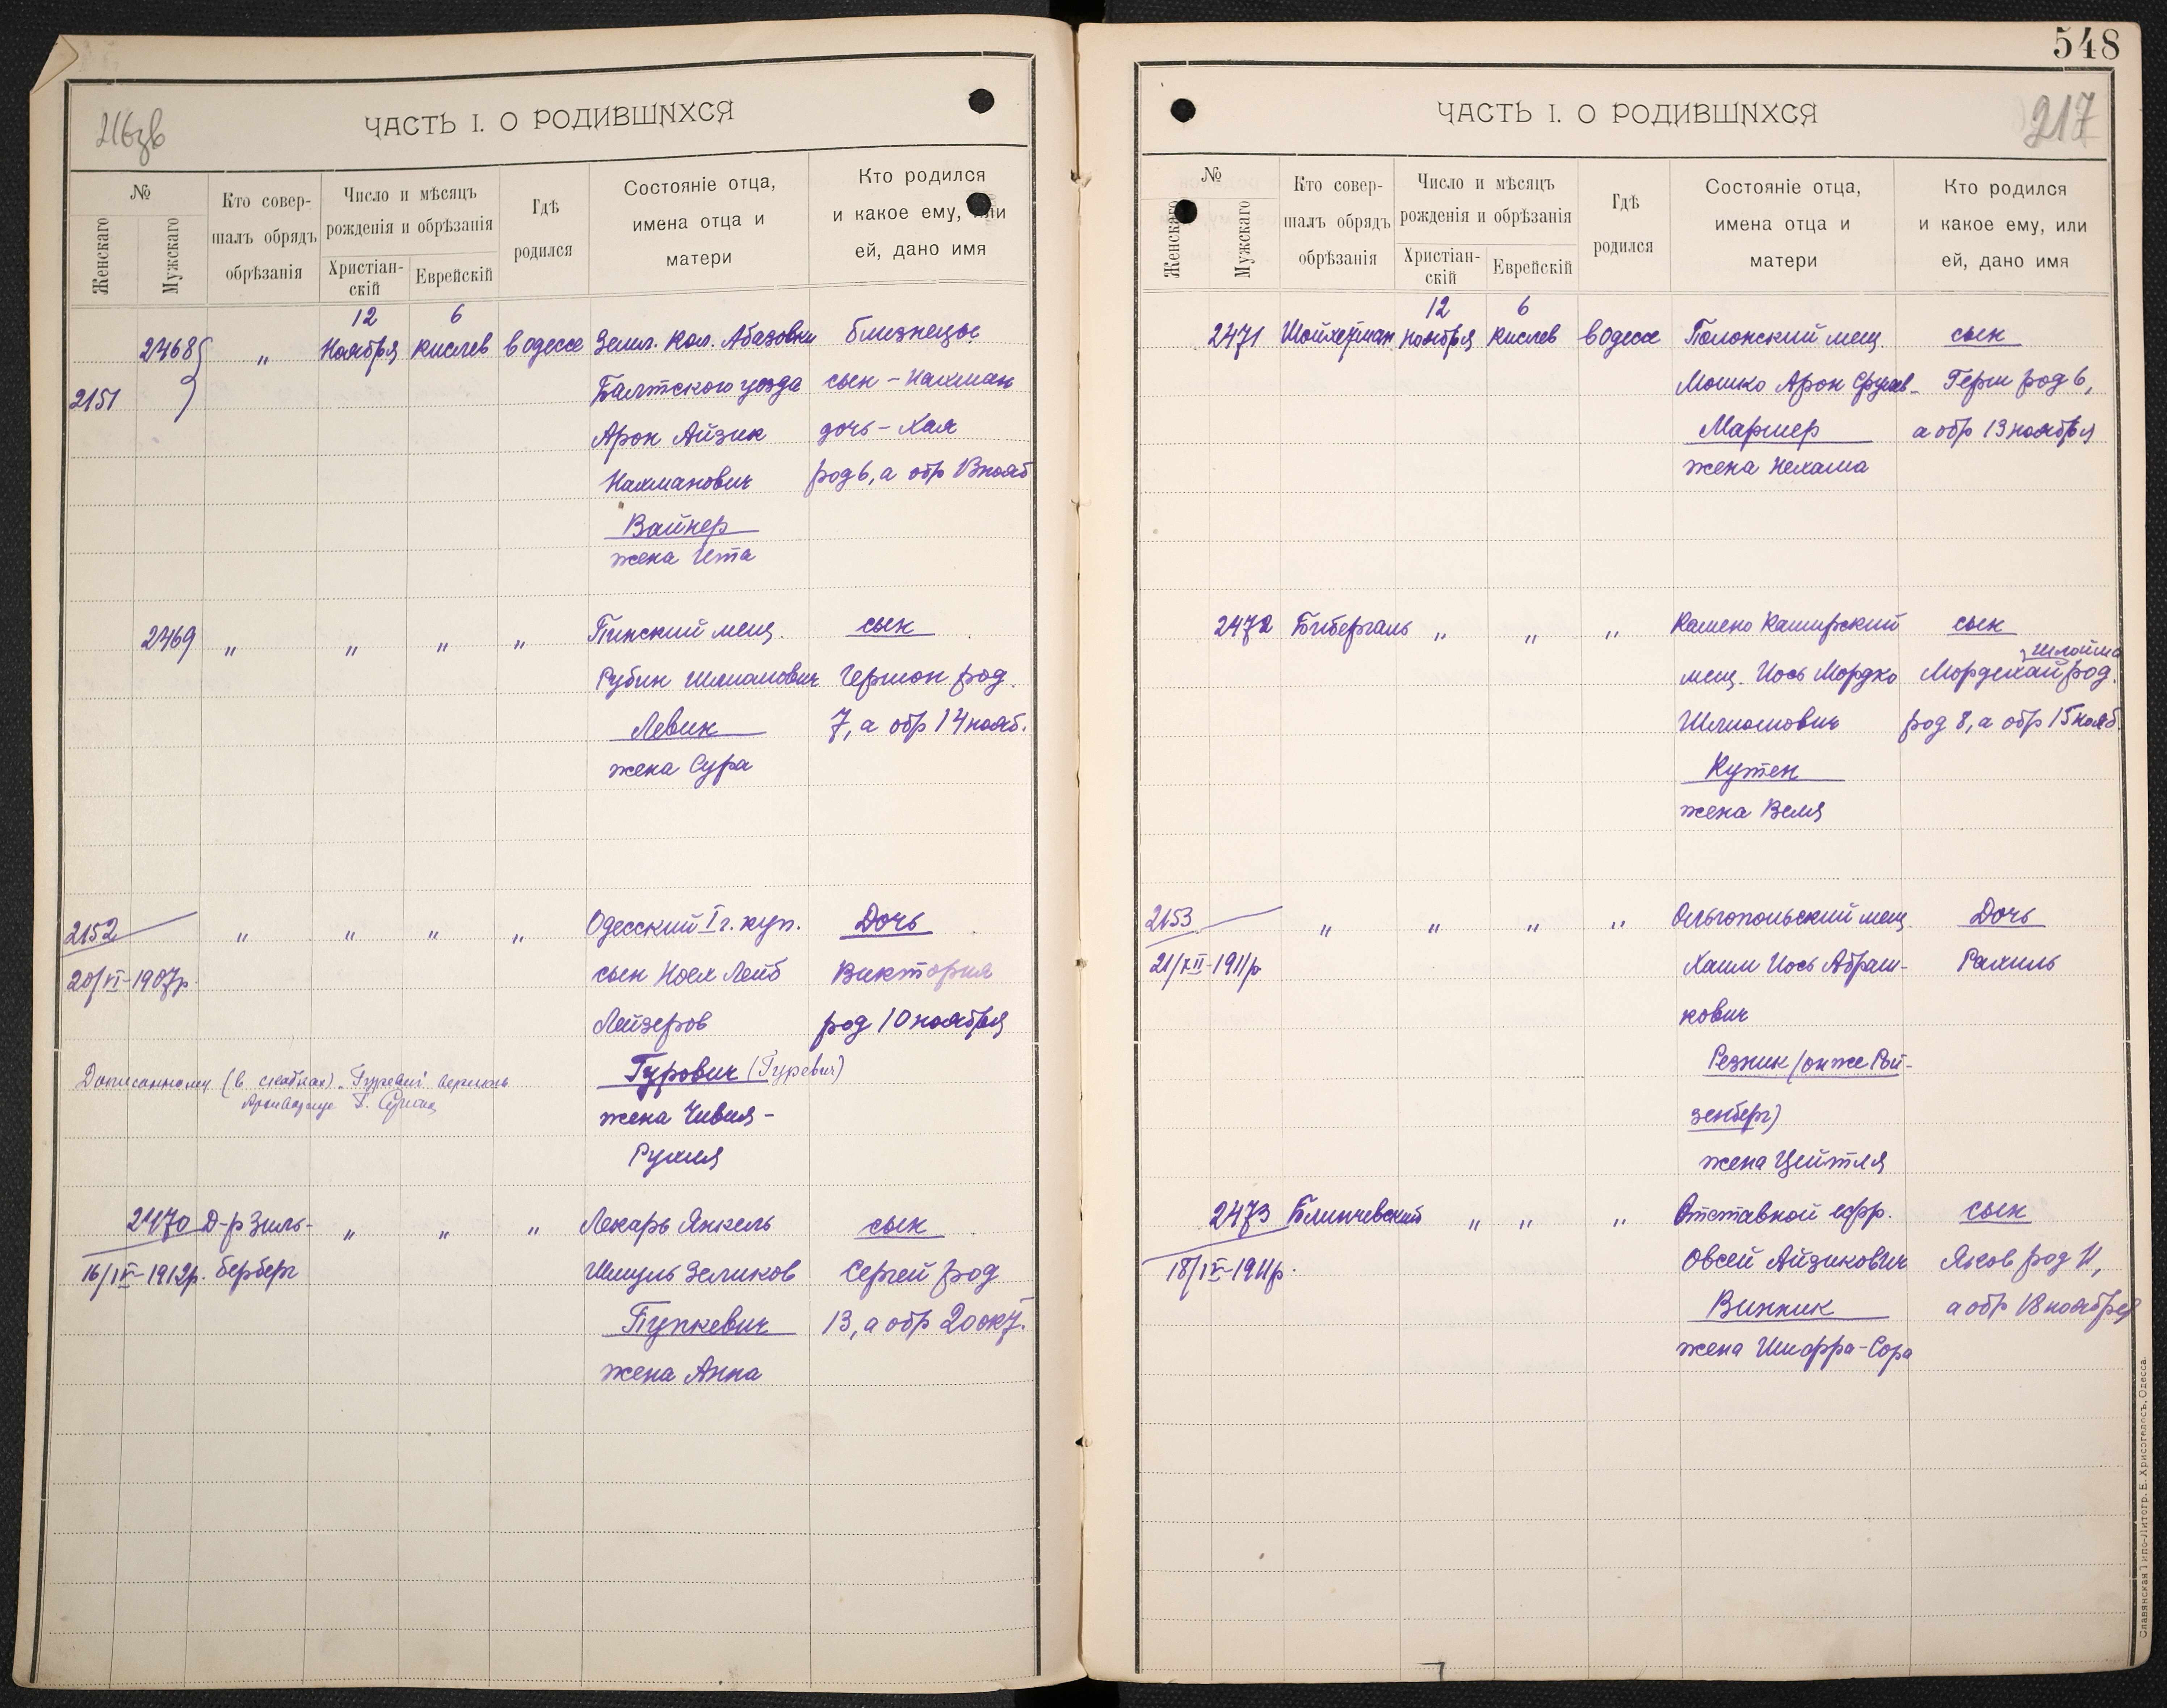 216зв
ЧАСТЬ I. О РОДИВШИХСЯ
№
Женскаго
Мужскаго
Кто совер-
шалъ обрядъ
обрѣзанія
Число и мѣсяцъ
рожденія и обрѣзанія
Христіан-
скій
Еврейскій
Гдѣ
родился
Состояніе отца,
имена отца и
матери
Кто родился
и какое ему, или
ей, дано имя
12 6
2468 " Ноября Кислев в Одессе Земл. Кол. Абазовки близнецы
2151 Балтского уезда сын - Нахман
Арон Айзик дочь - Хая
Нахманович род 6, а обр 13 нояб
Вайнер
жена Ита
2469 " " " " Пинский мещ. сын
Рубин Шмаиович Гершон род.
Левин 7, а обр 14 нояб.
жена Сура
2152 " " " " Одесский I г. куп. Дочь
20/VI-1907р. сын Ноех Лейб Виктория
Лейзеров род 10 ноября
Дописанному (в скобках) "Гуревич" верить Гурович (Гуревич)
жена Чивия-
Рухля
2470 Д-р Зиль- " " " Лекарь Янкель сын
16/IV-1912р. берберг Шмуль Зеликов Сергей род
Пупкевич 13, а обр 20 окт.
жена Анна
548
217
ЧАСТЬ I. О РОДИВШИХСЯ
№
Женскаго
Мужскаго
Кто совер-
шалъ обрядъ
обрѣзанія
Число и мѣсяцъ
рожденія и обрѣзанія
Христіан-
скій
Еврейскій
Гдѣ
родился
Состояніе отца,
имена отца и
матери
Кто родился
и какое ему, или
ей, дано имя
12 6
2471 Шойхетман Ноября Кислев в Одессе Полонский мещ. сын
Мошко Арон Срулев- Герш род 6,
Маршер а обр 13 ноября
жена Нехама
2472 Бибергаль " " " Камено Каширский сын
Шлойма
мещ. Иось Мордко Мордехай род.
Шлиомович род 8, а обр 15 нояб.
Кутен
жена Веля
2153 " " " " Ольгопольский мещ. Дочь
21/XII-1911р Хаим Иось Абрам- Рахиль
кович
Резник (он же Рой-
зенберг)
жена Цейтля
2473 Блинчевский " " " Отставной ефр. сын
18/IV-1911р. Овсей Айзикович Яков род 11,
Винник а обр 18 ноября
жена Шифра-Сора
Славянская Типо-Литогр. Е. Хрисогелосъ, Одесса.